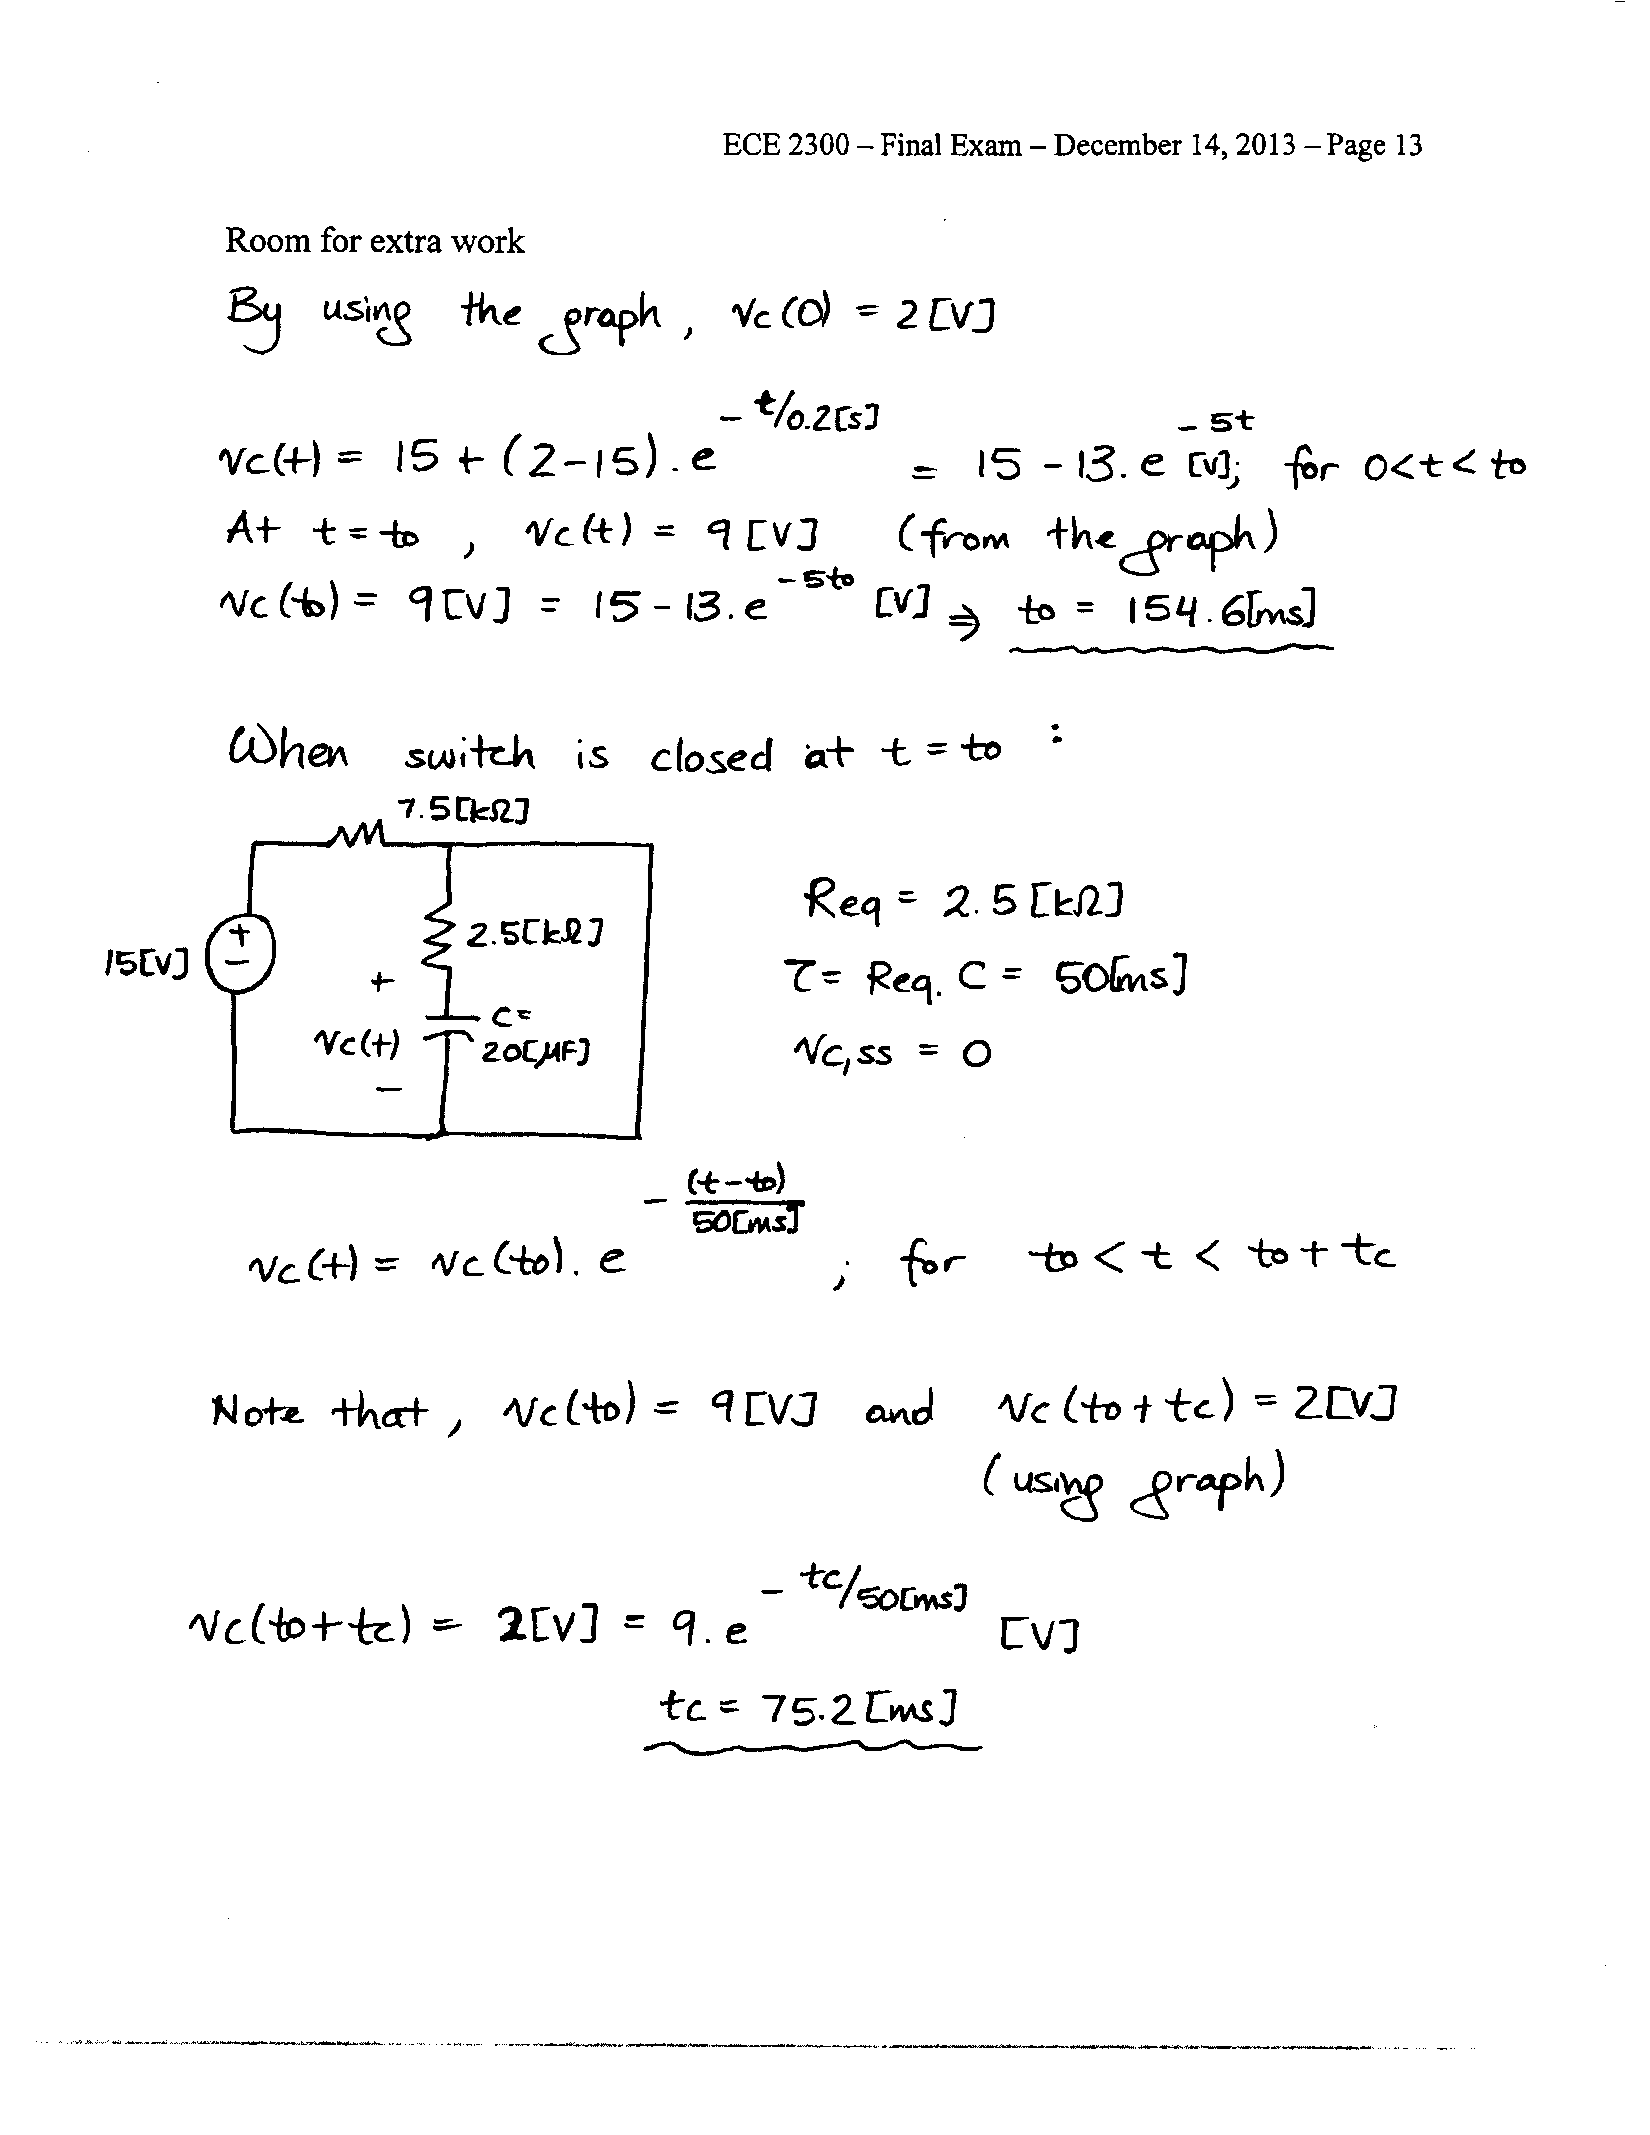 ECE 2300 – Final Exam – December 14, 2013 – Page 13
Room for extra work
By using the graph, vc(0) = 2[V]
vc(t) = 15 + (2-15).e^(-t/0.2[s]) = 15 - 13.e^(-5t) [V]; for 0<t<to
At t=to, vc(t) = 9[V] (from the graph)
vc(to) = 9[V] = 15-13.e^(-5to) [V] ⇒ to = 154.6[ms]
When switch is closed at t=to :
7.5[kΩ]
15[V]
+
-
2.5[kΩ]
+
vc(t)
-
C=
20[μF]
Req = 2.5[kΩ]
τ = Req.C = 50[ms]
vc,ss = 0
vc(t) = vc(to).e^(-(t-to)/50[ms]) ; for to < t < to + tc
Note that, vc(to) = 9[V] and vc(to+tc) = 2[V]
(using graph)
vc(to+tc) = 2[V] = 9.e^(-tc/50[ms]) [V]
tc = 75.2[ms]